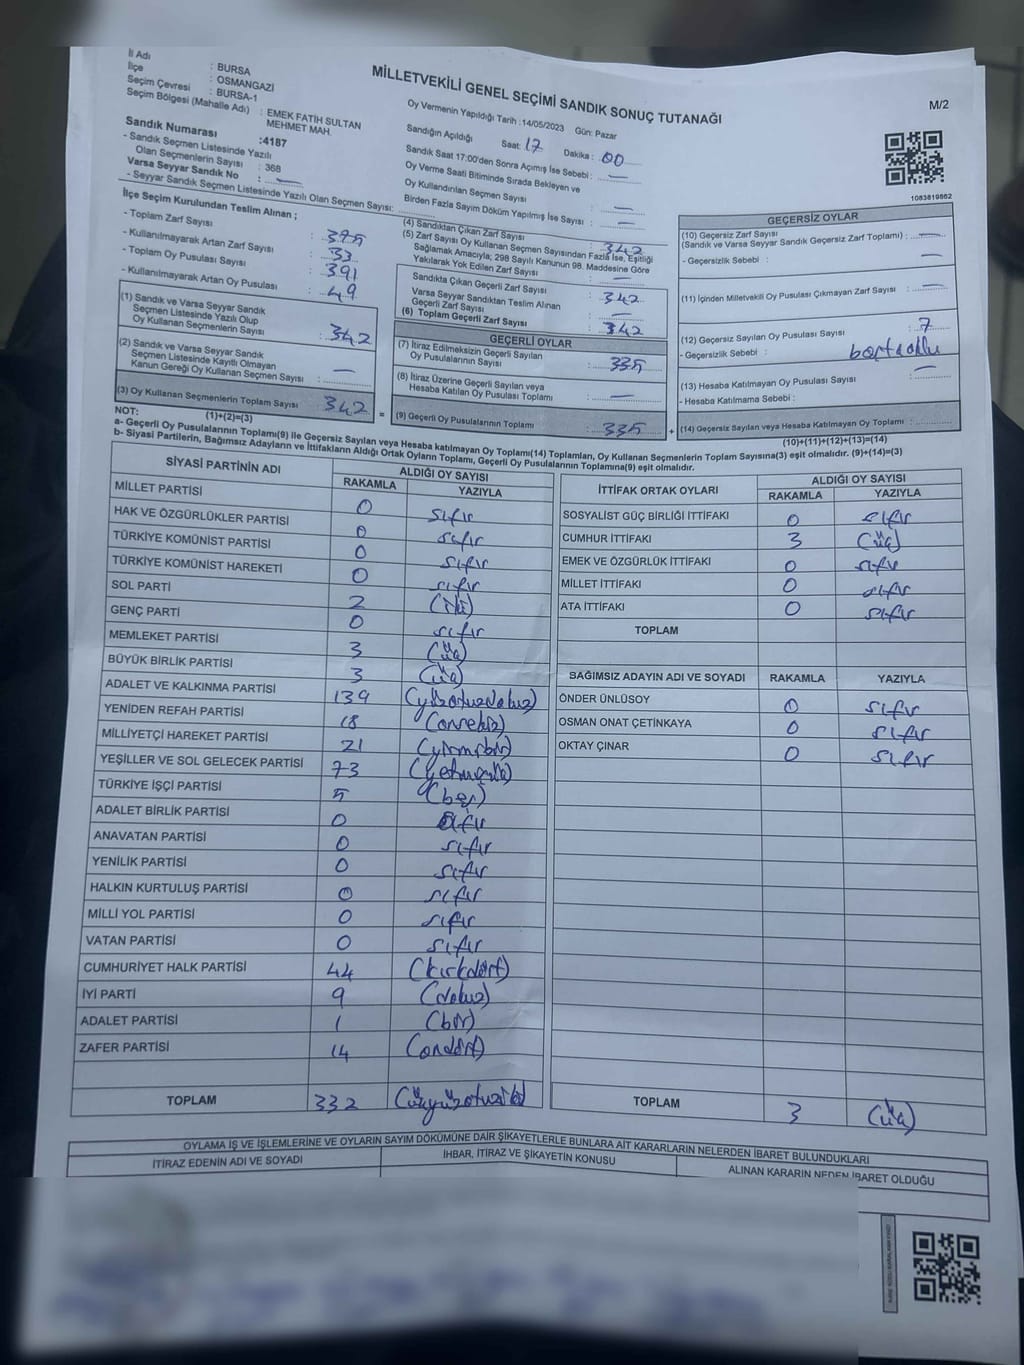 İl Adı : BURSA
İlçe : OSMANGAZİ
Seçim Çevresi : BURSA-1
Seçim Bölgesi (Mahalle Adı) : EMEK FATİH SULTAN
MEHMET MAH.
Sandık Numarası :4187
- Sandık Seçmen Listesinde Yazılı
Olan Seçmenlerin Sayısı : 368
Varsa Seyyar Sandık No : —
- Seyyar Sandık Seçmen Listesinde Yazılı Olan Seçmen Sayısı:
MİLLETVEKİLİ GENEL SEÇİMİ SANDIK SONUÇ TUTANAĞI
M/2
Oy Vermenin Yapıldığı Tarih :14/05/2023 Gün: Pazar
Sandığın Açıldığı Saat: 17 Dakika : 00
Sandık Saat 17:00'den Sonra Açımış İse Sebebi : —
Oy Verme Saati Bitiminde Sırada Bekleyen ve
Oy Kullandırılan Seçmen Sayısı —
Birden Fazla Sayım Döküm Yapılmış İse Sayısı : —
1083810862
İlçe Seçim Kurulundan Teslim Alınan ;
- Toplam Zarf Sayısı : 375
- Kullanılmayarak Artan Zarf Sayısı : 33
- Toplam Oy Pusulası Sayısı : 391
- Kullanılmayarak Artan Oy Pusulası : 49
(1) Sandık ve Varsa Seyyar Sandık
Seçmen Listesinde Yazılı Olup
Oy Kullanan Seçmenlerin Sayısı : 342
(2) Sandık ve Varsa Seyyar Sandık
Seçmen Listesinde Kayıtlı Olmayan
Kanun Gereği Oy Kullanan Seçmen Sayısı : —
(3) Oy Kullanan Seçmenlerin Toplam Sayısı 342
(1)+(2)=(3)
(4) Sandıktan Çıkan Zarf Sayısı : 342
(5) Zarf Sayısı Oy Kullanan Seçmen Sayısından Fazla İse, Eşitliği
Sağlamak Amacıyla; 298 Sayılı Kanunun 98. Maddesine Göre
Yakılarak Yok Edilen Zarf Sayısı : —
Sandıkta Çıkan Geçerli Zarf Sayısı : 342
Varsa Seyyar Sandıktan Teslim Alınan
Geçerli Zarf Sayısı : —
(6) Toplam Geçerli Zarf Sayısı : 342
GEÇERLİ OYLAR
(7) İtiraz Edilmeksizin Geçerli Sayılan
Oy Pusulalarının Sayısı : 335
(8) İtiraz Üzerine Geçerli Sayılan veya
Hesaba Katılan Oy Pusulası Toplamı : —
= (9) Geçerli Oy Pusulalarının Toplamı : 335 +
GEÇERSİZ OYLAR
(10) Geçersiz Zarf Sayısı
(Sandık ve Varsa Seyyar Sandık Geçersiz Zarf Toplamı) : —
- Geçersizlik Sebebi : —
(11) İçinden Milletvekili Oy Pusulası Çıkmayan Zarf Sayısı : —
(12) Geçersiz Sayılan Oy Pusulası Sayısı : 7
- Geçersizlik Sebebi :
(13) Hesaba Katılmayan Oy Pusulası Sayısı : —
- Hesaba Katılmama Sebebi :
(14) Geçersiz Sayılan veya Hesaba Katılmayan Oy Pusulası Toplamı :
(10)+(11)+(12)+(13)=(14)
NOT:
a- Geçerli Oy Pusulalarının Toplamı(9) ile Geçersiz Sayılan veya Hesaba katılmayan Oy Toplamı(14) Toplamları, Oy Kullanan Seçmenlerin Toplam Sayısına(3) eşit olmalıdır. (9)+(14)=(3)
b- Siyasi Partilerin, Bağımsız Adayların ve İttifakların Aldığı Ortak Oyların Toplamı, Geçerli Oy Pusulalarının Toplamına(9) eşit olmalıdır.
SİYASİ PARTİNİN ADI ALDIĞI OY SAYISI
RAKAMLA YAZIYLA
MİLLET PARTİSİ 0 sıfır
HAK VE ÖZGÜRLÜKLER PARTİSİ 0 sıfır
TÜRKİYE KOMÜNİST PARTİSİ 0 sıfır
TÜRKİYE KOMÜNİST HAREKETİ 0 sıfır
SOL PARTİ 2 (iki)
GENÇ PARTİ 0 sıfır
MEMLEKET PARTİSİ 3 (üç)
BÜYÜK BİRLİK PARTİSİ 3 (üç)
ADALET VE KALKINMA PARTİSİ 139 (yüzotuzdokuz)
YENİDEN REFAH PARTİSİ 18 (onsekiz)
MİLLİYETÇİ HAREKET PARTİSİ 21 (yirmibir)
YEŞİLLER VE SOL GELECEK PARTİSİ 73 (yetmişüç)
TÜRKİYE İŞÇİ PARTİSİ 5 (beş)
ADALET BİRLİK PARTİSİ 0 sıfır
ANAVATAN PARTİSİ 0 sıfır
YENİLİK PARTİSİ 0 sıfır
HALKIN KURTULUŞ PARTİSİ 0 sıfır
MİLLİ YOL PARTİSİ 0 sıfır
VATAN PARTİSİ 0 sıfır
CUMHURİYET HALK PARTİSİ 44 (kırkdört)
İYİ PARTİ 9 (dokuz)
ADALET PARTİSİ 1 (bir)
ZAFER PARTİSİ 14 (ondört)
TOPLAM 332 (üçyüzotuziki)
İTTİFAK ORTAK OYLARI ALDIĞI OY SAYISI
RAKAMLA YAZIYLA
SOSYALİST GÜÇ BİRLİĞİ İTTİFAKI 0 sıfır
CUMHUR İTTİFAKI 3 (üç)
EMEK VE ÖZGÜRLÜK İTTİFAKI 0 sıfır
MİLLET İTTİFAKI 0 sıfır
ATA İTTİFAKI 0 sıfır
TOPLAM
BAĞIMSIZ ADAYIN ADI VE SOYADI RAKAMLA YAZIYLA
ÖNDER ÜNLÜSOY 0 sıfır
OSMAN ONAT ÇETİNKAYA 0 sıfır
OKTAY ÇINAR 0 sıfır
TOPLAM 3 (üç)
OYLAMA İŞ VE İŞLEMLERİNE VE OYLARIN SAYIM DÖKÜMÜNE DAİR ŞİKAYETLERLE BUNLARA AİT KARARLARIN NELERDEN İBARET BULUNDUKLARI
İTİRAZ EDENİN ADI VE SOYADI İHBAR, İTİRAZ VE ŞİKAYETİN KONUSU ALINAN KARARIN NEDEN İBARET OLDUĞU